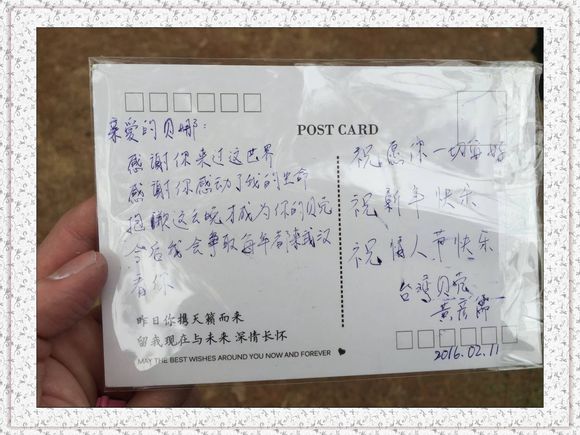 POST CARD
亲爱的贝娜：
感谢你来过这世界
感谢你感动了我的生命
抱歉这么晚才成为你的贝壳
今后我会争取每年都来武汉
看你
昨日你携天籁而来
留我现在与未来 深情长怀
MAY THE BEST WISHES AROUND YOU NOW AND FOREVER
祝愿你一切安好
祝新年快乐
祝情人节快乐
台湾贝壳
黄彦
2016.02.11